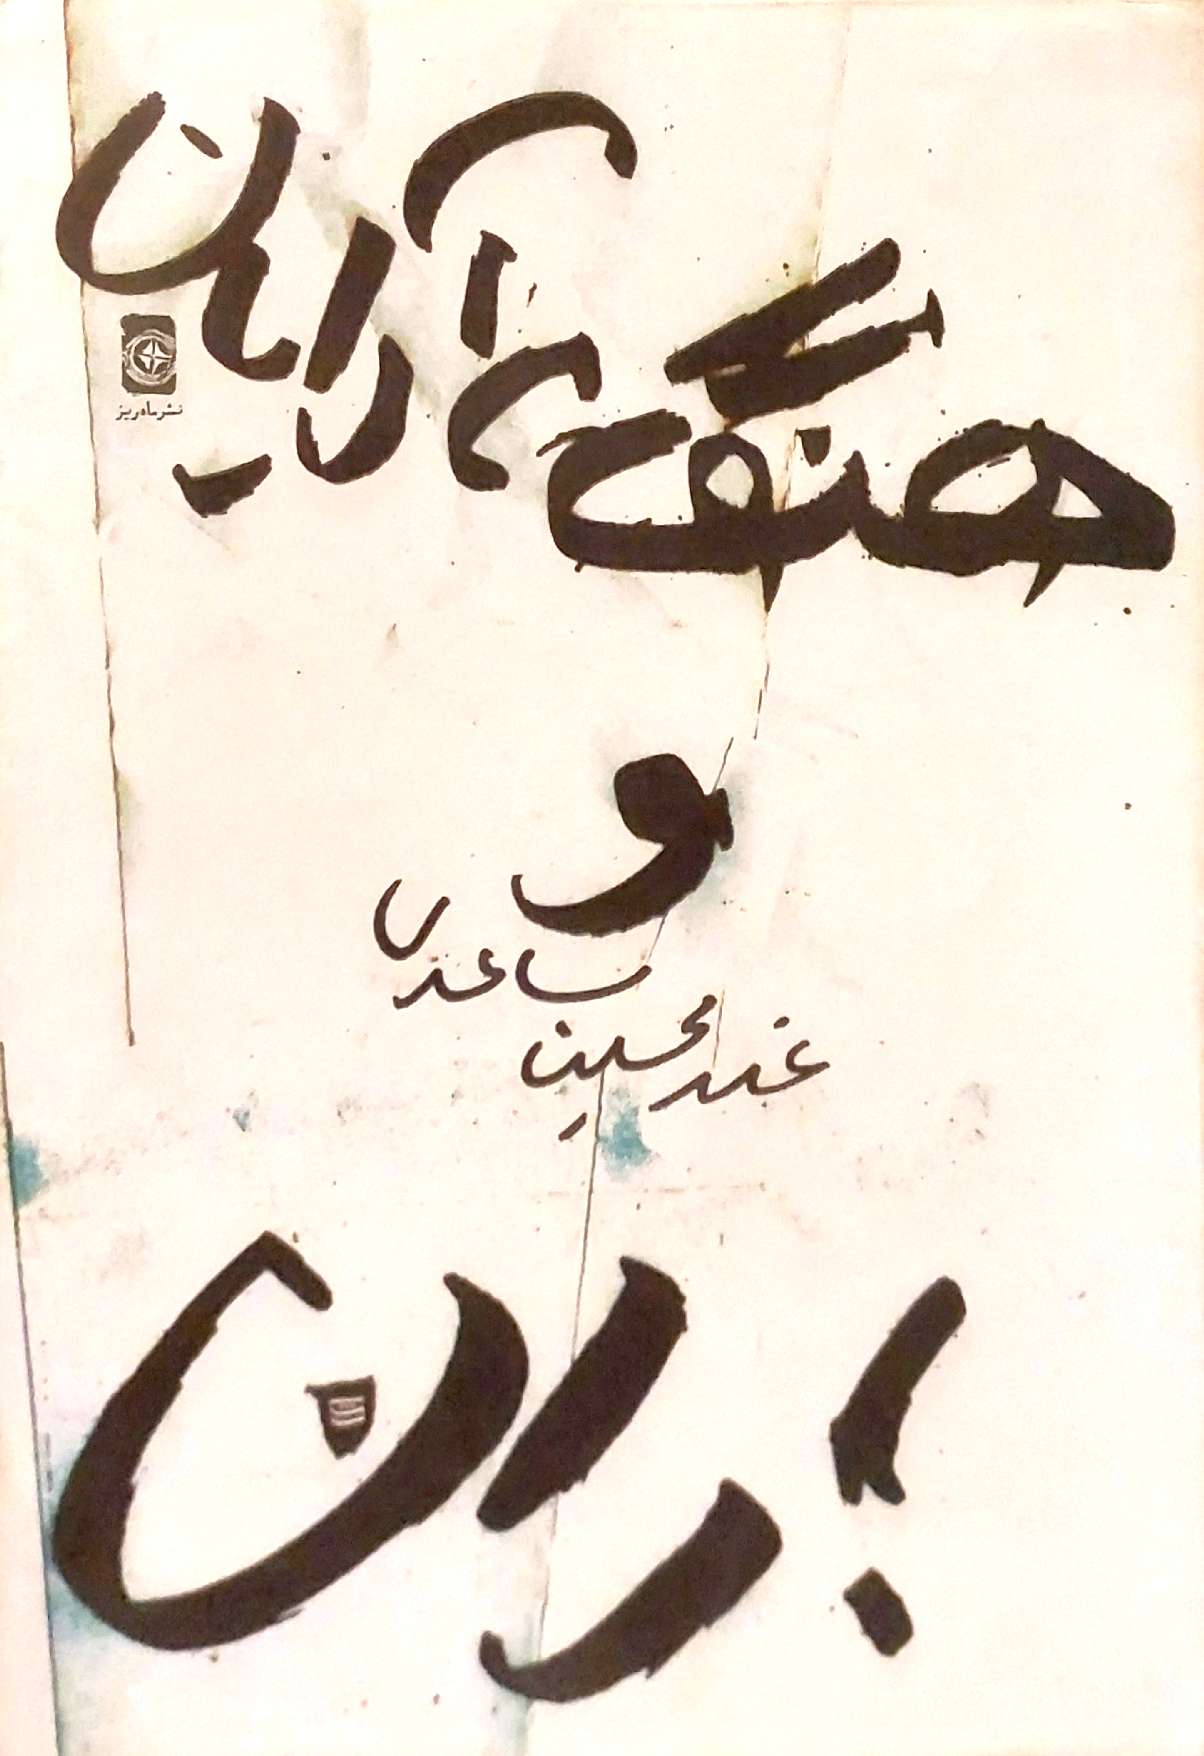 هنگامه آرایان
نشر ماه ریز
و
غلامحسین ساعدی
باران